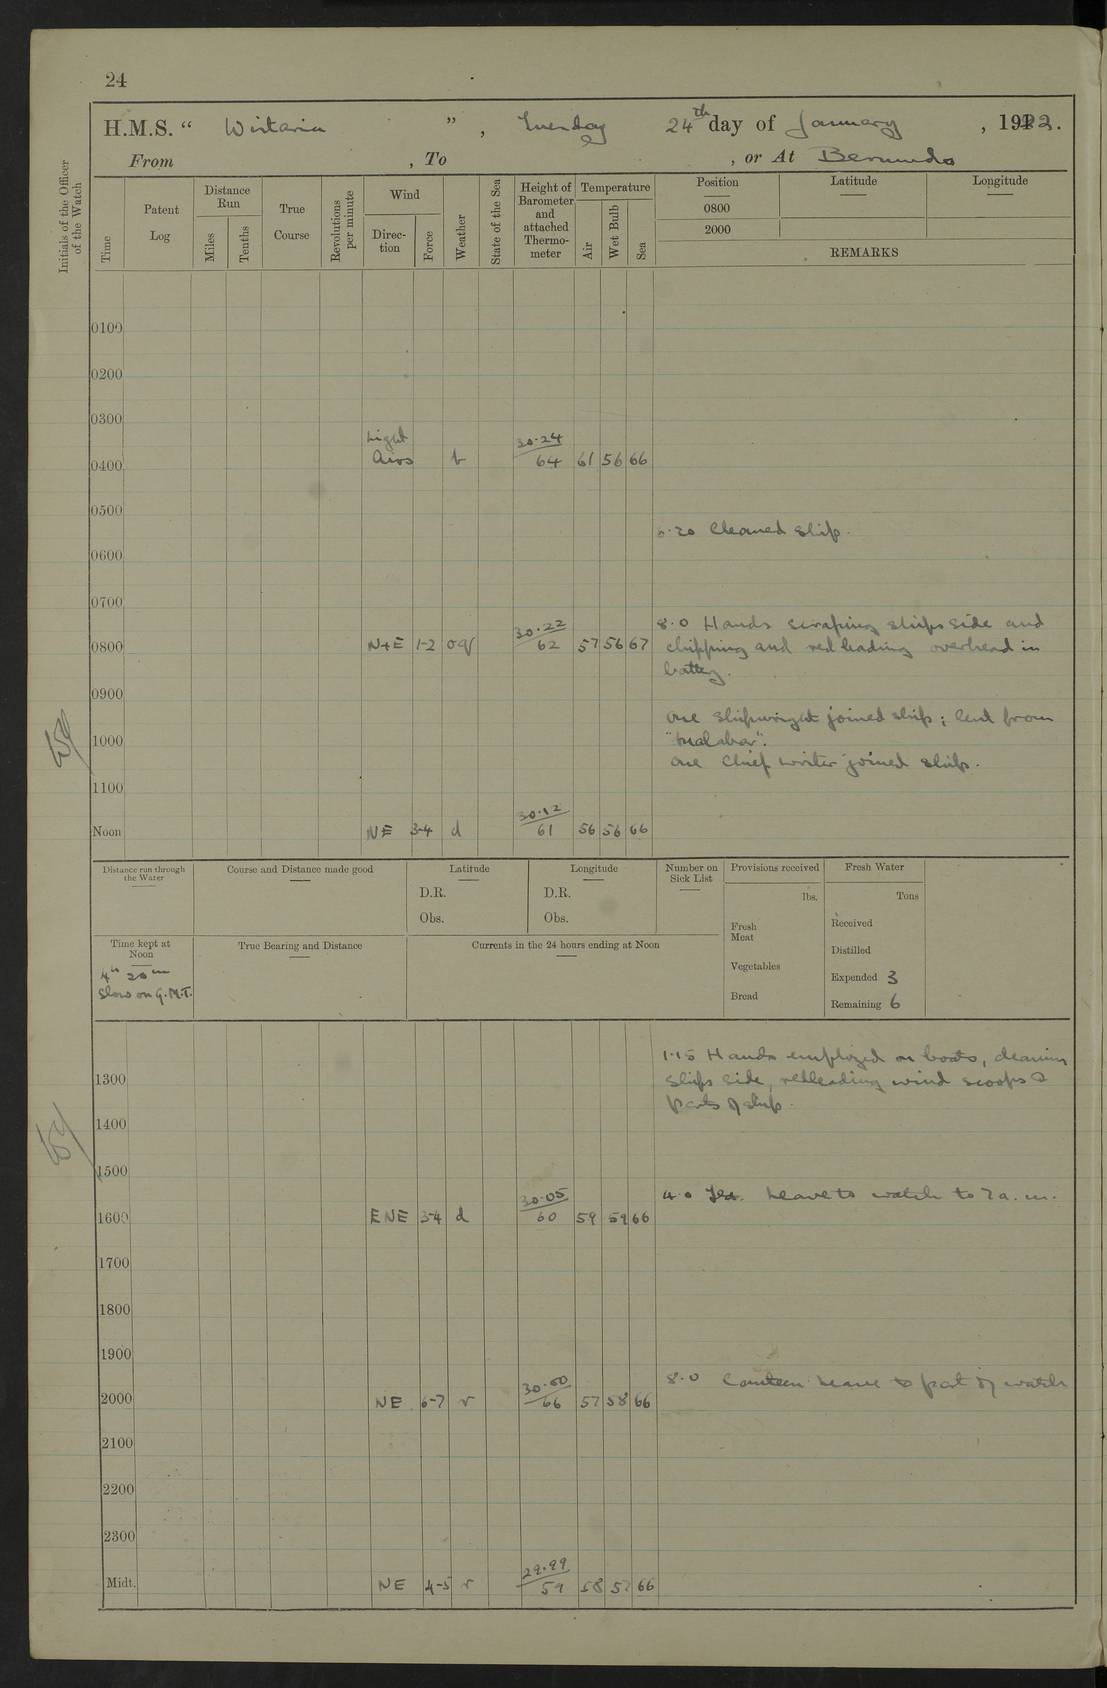 24
H.M.S. “ Wistaria ” , Tuesday 24th day of January , 1922.
From , To , or At Bermuda
Initials of the Officer of the Watch
Time
Patent Log
Distance Run
Miles
Tenths
True Course
Revolutions per minute
Wind
Direction
Force
Weather
State of the Sea
Height of Barometer and attached Thermometer
Temperature
Air
Wet Bulb
Sea
Position Latitude Longitude
0800
2000
REMARKS
0100
0200
0300
Light 30.24
0400 Airs b 64 61 56 66
0500
5.20 Cleaned ship.
0600
0700
30.22 8.0 Hands scraping ships side and
0800 N+E 1-2 oq 62 57 56 67 chipping and redleading overhead in
battery.
0900
One shipwright joined ship; lent from
1000 "Malabar".
One chief writer joined ship.
1100
30.12
Noon NE 3-4 d 61 56 56 66
Distance run through the Water
Course and Distance made good
Latitude
D.R.
Obs.
Longitude
D.R.
Obs.
Number on Sick List
Provisions received
lbs.
Fresh Meat
Vegetables
Bread
Fresh Water
Tons
Received
Distilled
Expended 3
Remaining 6
Time kept at Noon
4h 20m
Slow on G.M.T.
True Bearing and Distance
Currents in the 24 hours ending at Noon
1.15 Hands employed on boats, cleaning
1300 ships side, redleading wind scoops &
parts of ship.
1400
1500
30.05 4.0 Leave to watch to 7 a.m.
1600 ENE 3-4 d 60 59 59 66
1700
1800
1900
30.00 8.0 Canteen leave to part of watch
2000 NE 6-7 r 66 57 58 66
2100
2200
2300
29.99
Midt. NE 4-5 r 59 58 57 66